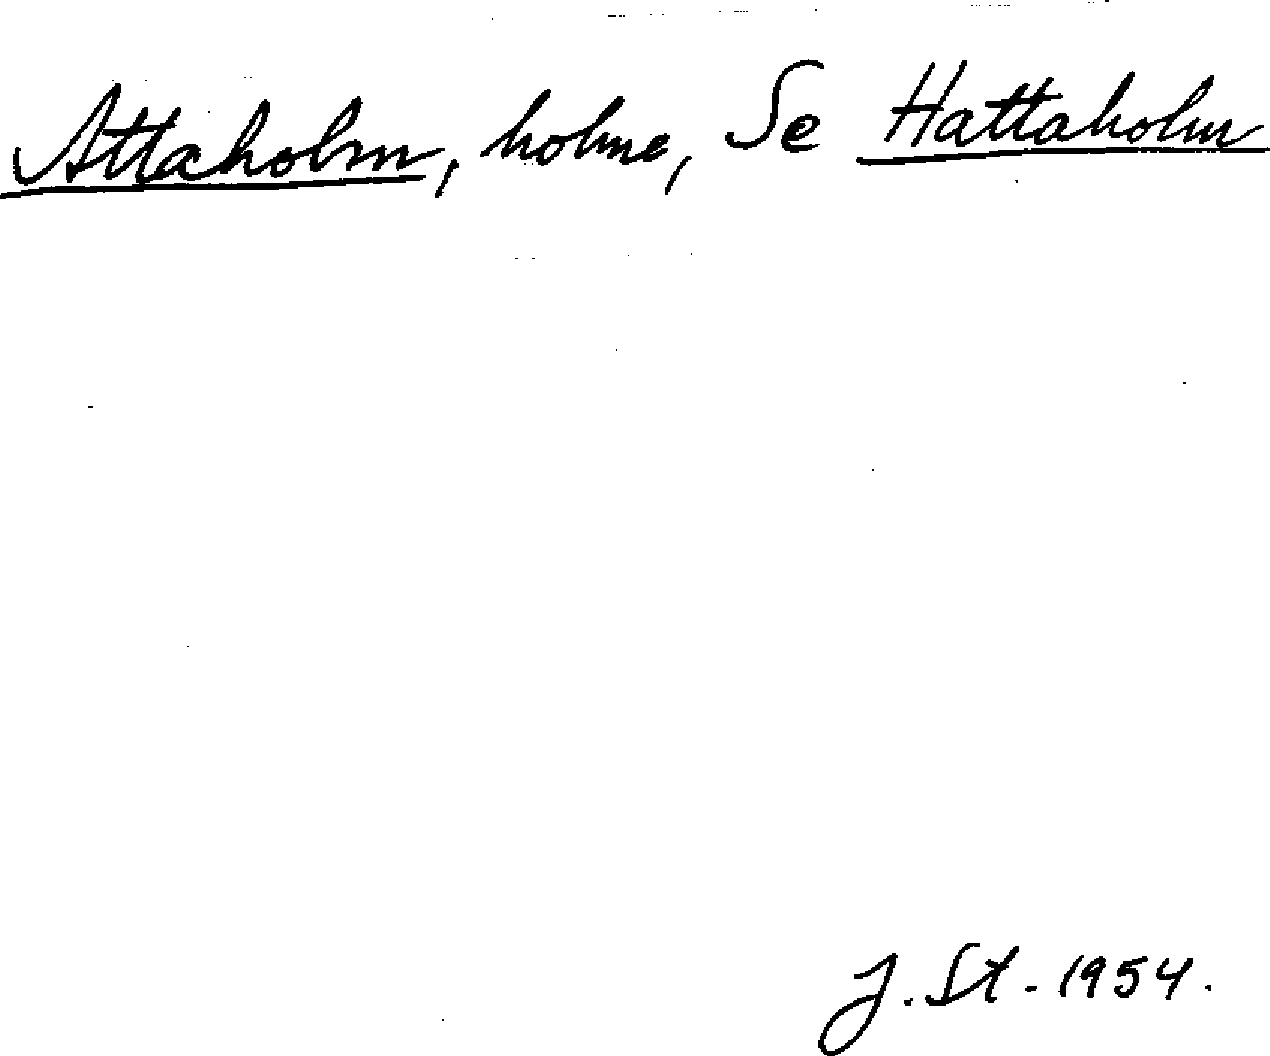 Attaholm, holme, Se Hattaholm
J. St. 1954.